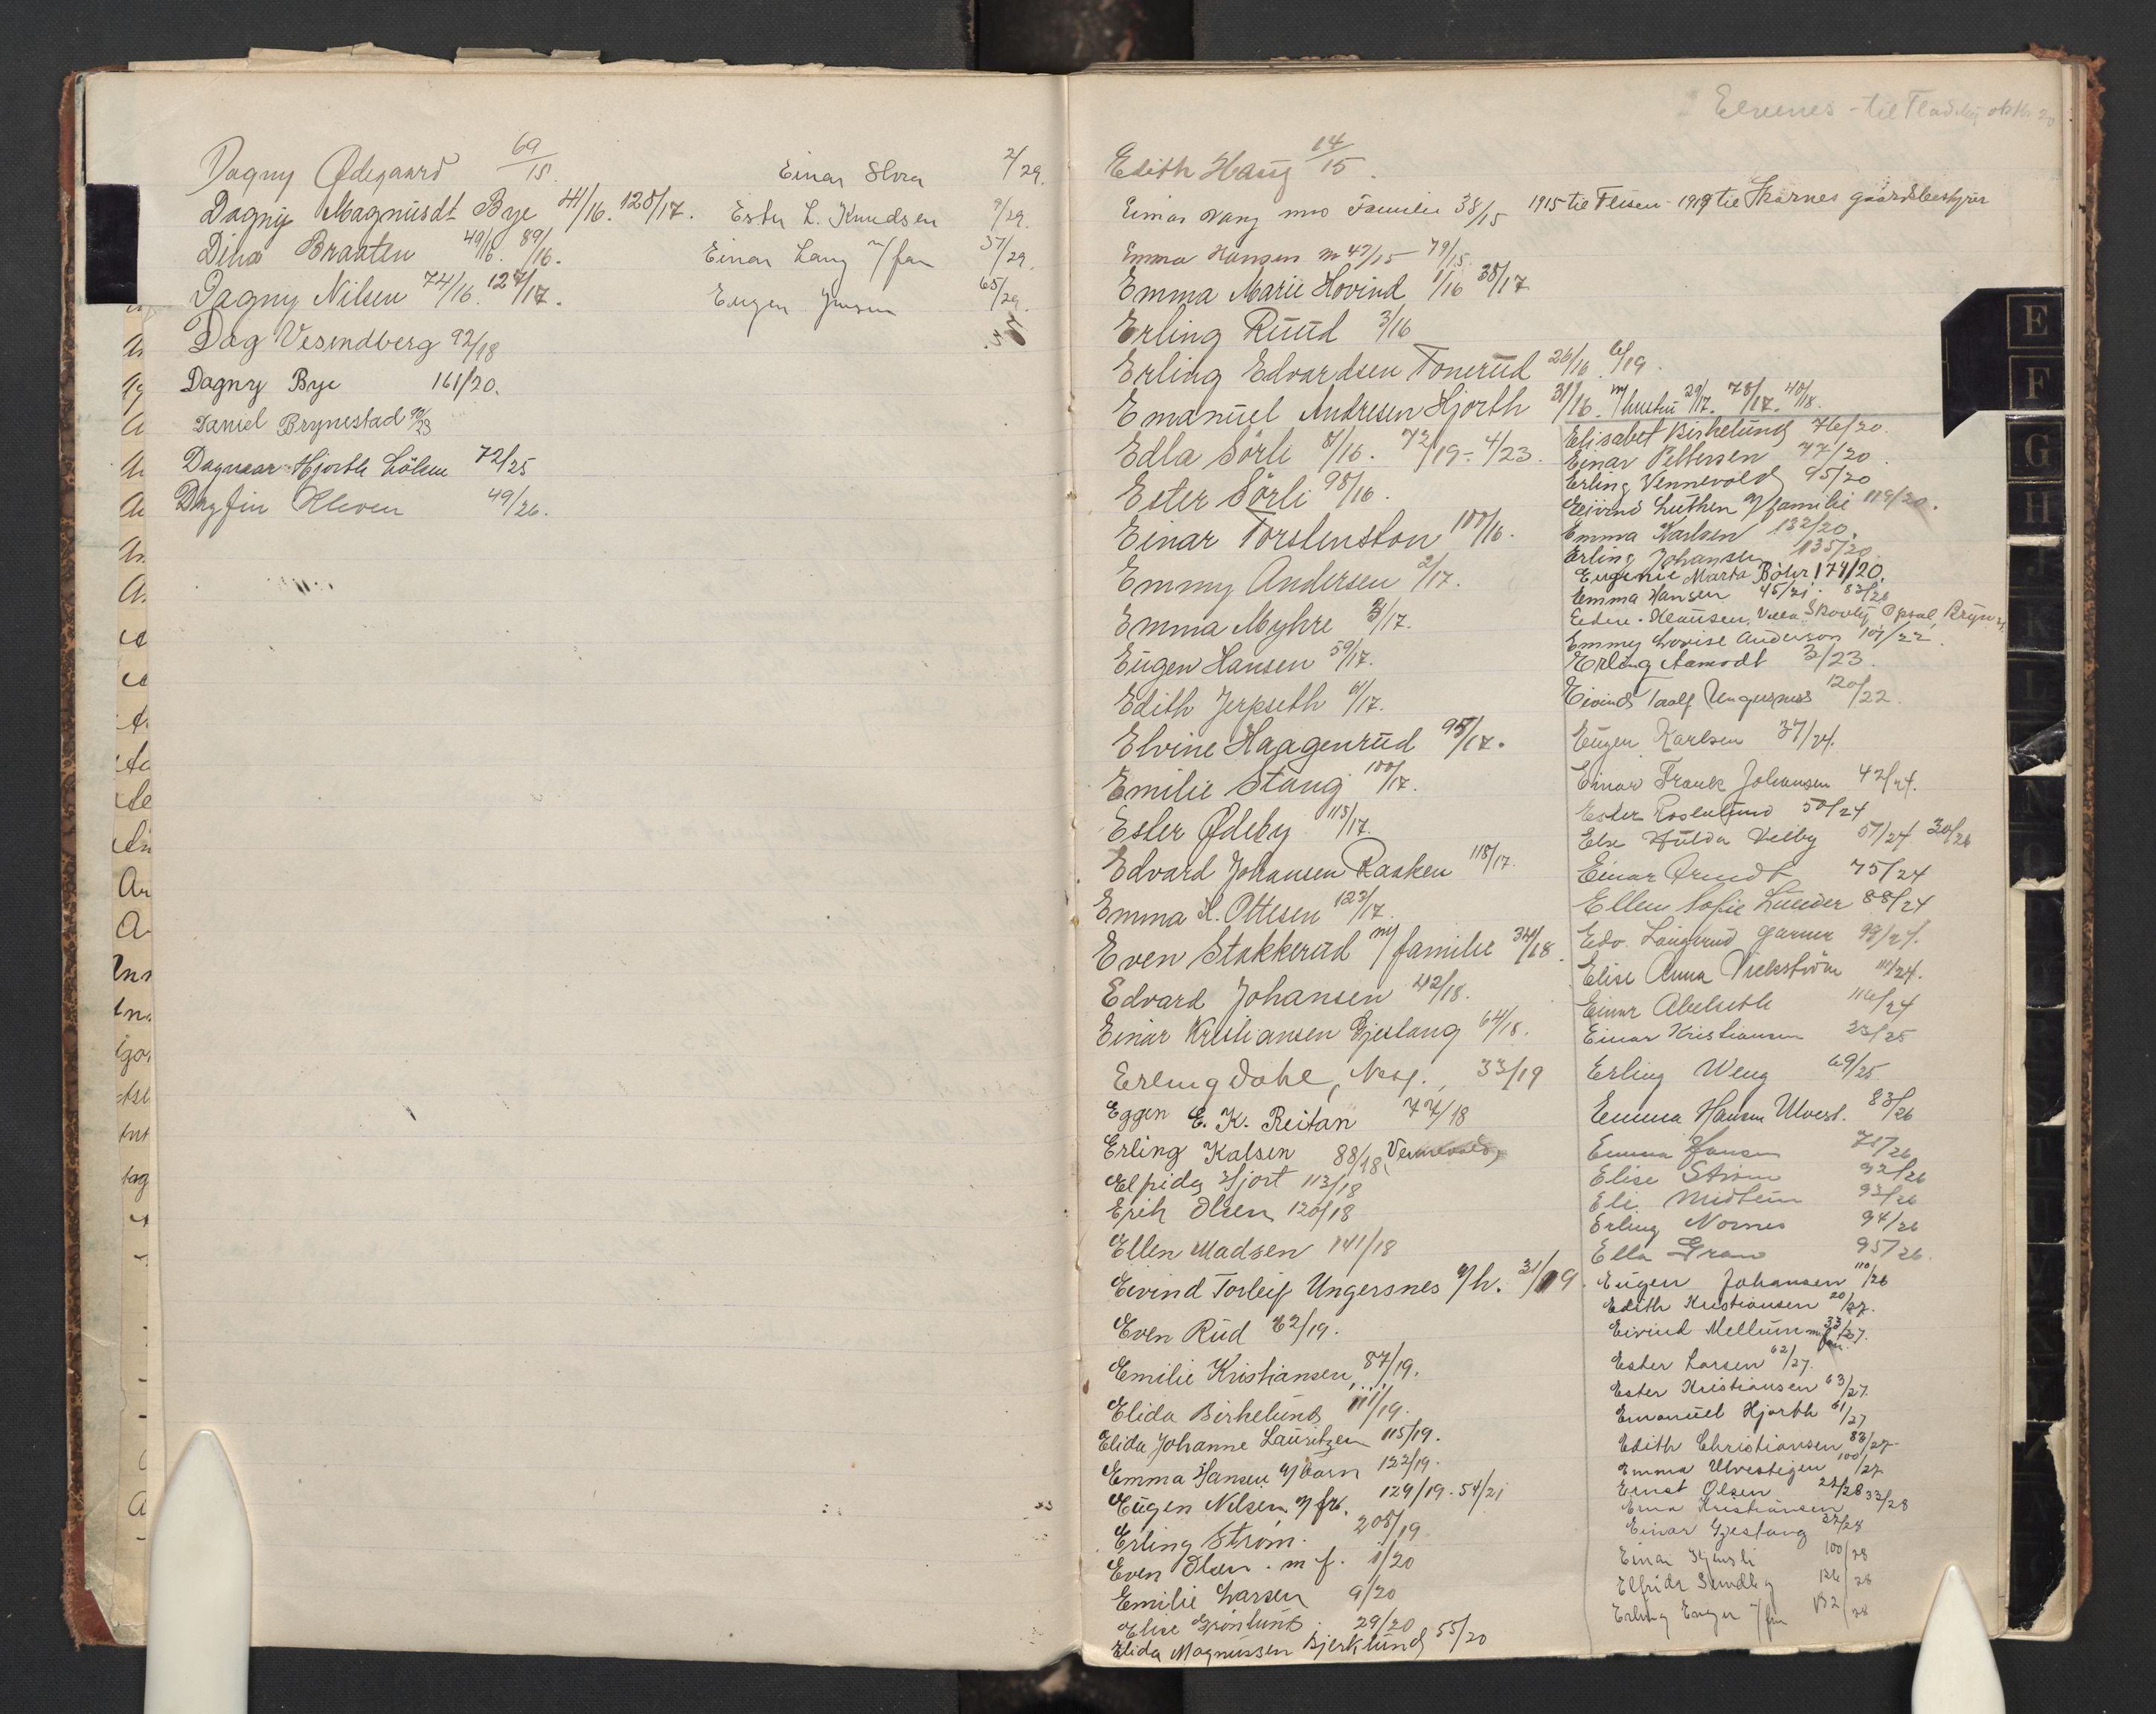 Dagny Ødegaard 69/15.
Dagny Magnusdt Bye 44/16. 128/17.
Dina Braaten 49/16. 89/16.
Dagny Nilsen 74/16. 127/17.
Dag Vesindberg 92/18
Dagny Bye 161/20.
Daniel Brynestad 90/23
Dagmar Hjorth Lølsen 72/25
Dagfin Kleven 49/26.
Einar 2/29.
Ester L. Knudsen 9/29.
Einar Lang m/fam 37/29.
Eugen Jensen 65/29.
Elvenes - til Fladeby oktbr 20
Edith Haug 14/15.
Einar Vang med Familie 38/15 1915 til Flisen 1919 til Skarnes gaardsbestyrer
Emma Hansen 47/15 79/15.
Emma Marie Hovind 1/16 38/17
Erling Ruud 3/16
Erling Edvardsen Tonerud 26/16. 6/19.
Emanuel Andresen Hjorth 31/16. m/hustru 29/17. 78/17. 40/18.
Edla Sörli 8/16. 72/19 - 4/23.
Ester Sörli 98/16.
Einar Torstenston 100/16.
Emmy Andersen 2/17.
Emma Myhre 3/17.
Eugen Hansen 59/17.
Edith Jerpseth 61/17.
Elvine Haagenrud 98/17.
Emilie Stang 100/17.
Ester Ødeby 113/17.
Edvard Johansen Raaken 118/17.
Emma H. Ottesen 123/17.
Even Stakkerud m/familie 34/18.
Edvard Johansen 42/18.
Einar Kristiansen Gjeslang 64/18.
Erling Dahl, 33/19
Eggen E. K. Reitan 77/18
Erling Kalsen 88/18 Vennevold,
Elpida Hjort 113/18
Erik Olsen 120/18
Ellen Madsen 141/18
Eivind Torleif Ungersnes m/h. 31/19.
Even Rud 62/19.
Emilie Kristiansen 87/19.
Elida Birkelund 111/19.
Elida Johanne Lauritzen 115/19.
Emma Hansen m/barn 122/19.
Eugen Nilsen m/fr. 129/19. 54/21
Erling Strøm. 208/19.
Even Olsen. m f. 1/20
Emilie Larsen 9/20
Elise Grönlund 29/20
Elida Magnussen Bjerklund 55/20
Elisabet Birkelund 76/20.
Einar Pettersen 77/20.
Erling Vennevold 95/20
Eivind Luthen m/familie 119/20.
Emma Karlsen 132/20.
Erling Johansen 135/20.
Eugenie Marta Böhr 174/20.
Emma Hansen 45/21. 83/26
Klausen, Villa Skovly, Opsal, Bryn
Emmy Lovise Anderson 107/22.
Erling Aamodt 3/23.
Eivind Taalf Ungersness 120/22.
Eugen Karlsen 37/24.
Einar Frank Johansen 42/24.
Ester Roslund 50/24
Else Hulda Velby 57/24 30/26
Einar Arndt 75/24
Ellen Sofie Lunder 88/24
Edv. Langerud garner 99/24.
Elise Anna Vickström 111/24.
Einar Abelseth 116/24
Einar Kristiansen 23/25
Erling Weng 69/25
Emma Hansen Ulvest. 83/26
Emma Hansen 71/26
Elise Strøm 92/26
Eli Midtun 93/26
Erling Nornes 94/26
Ella Gran 95/26.
Eugen Johansen 110/26
Edith Kristiansen 20/27.
Eivind Mellum m/fam. 33/27.
Ester Larsen 62/27.
Ester Kristiansen 63/27.
Emanuel Hjorth 61/27
Edith Christiansen 83/27
Emma Ulvestigen 100/27
Ernst Olsen 24/28
Erna Kristiansen 33/28
Einar Gjestang 27/28
Einar 100/28
Elfrida Sundby 126/28
Erling Enger m/fam 132/28
E
F
G
H
J
K
L
N